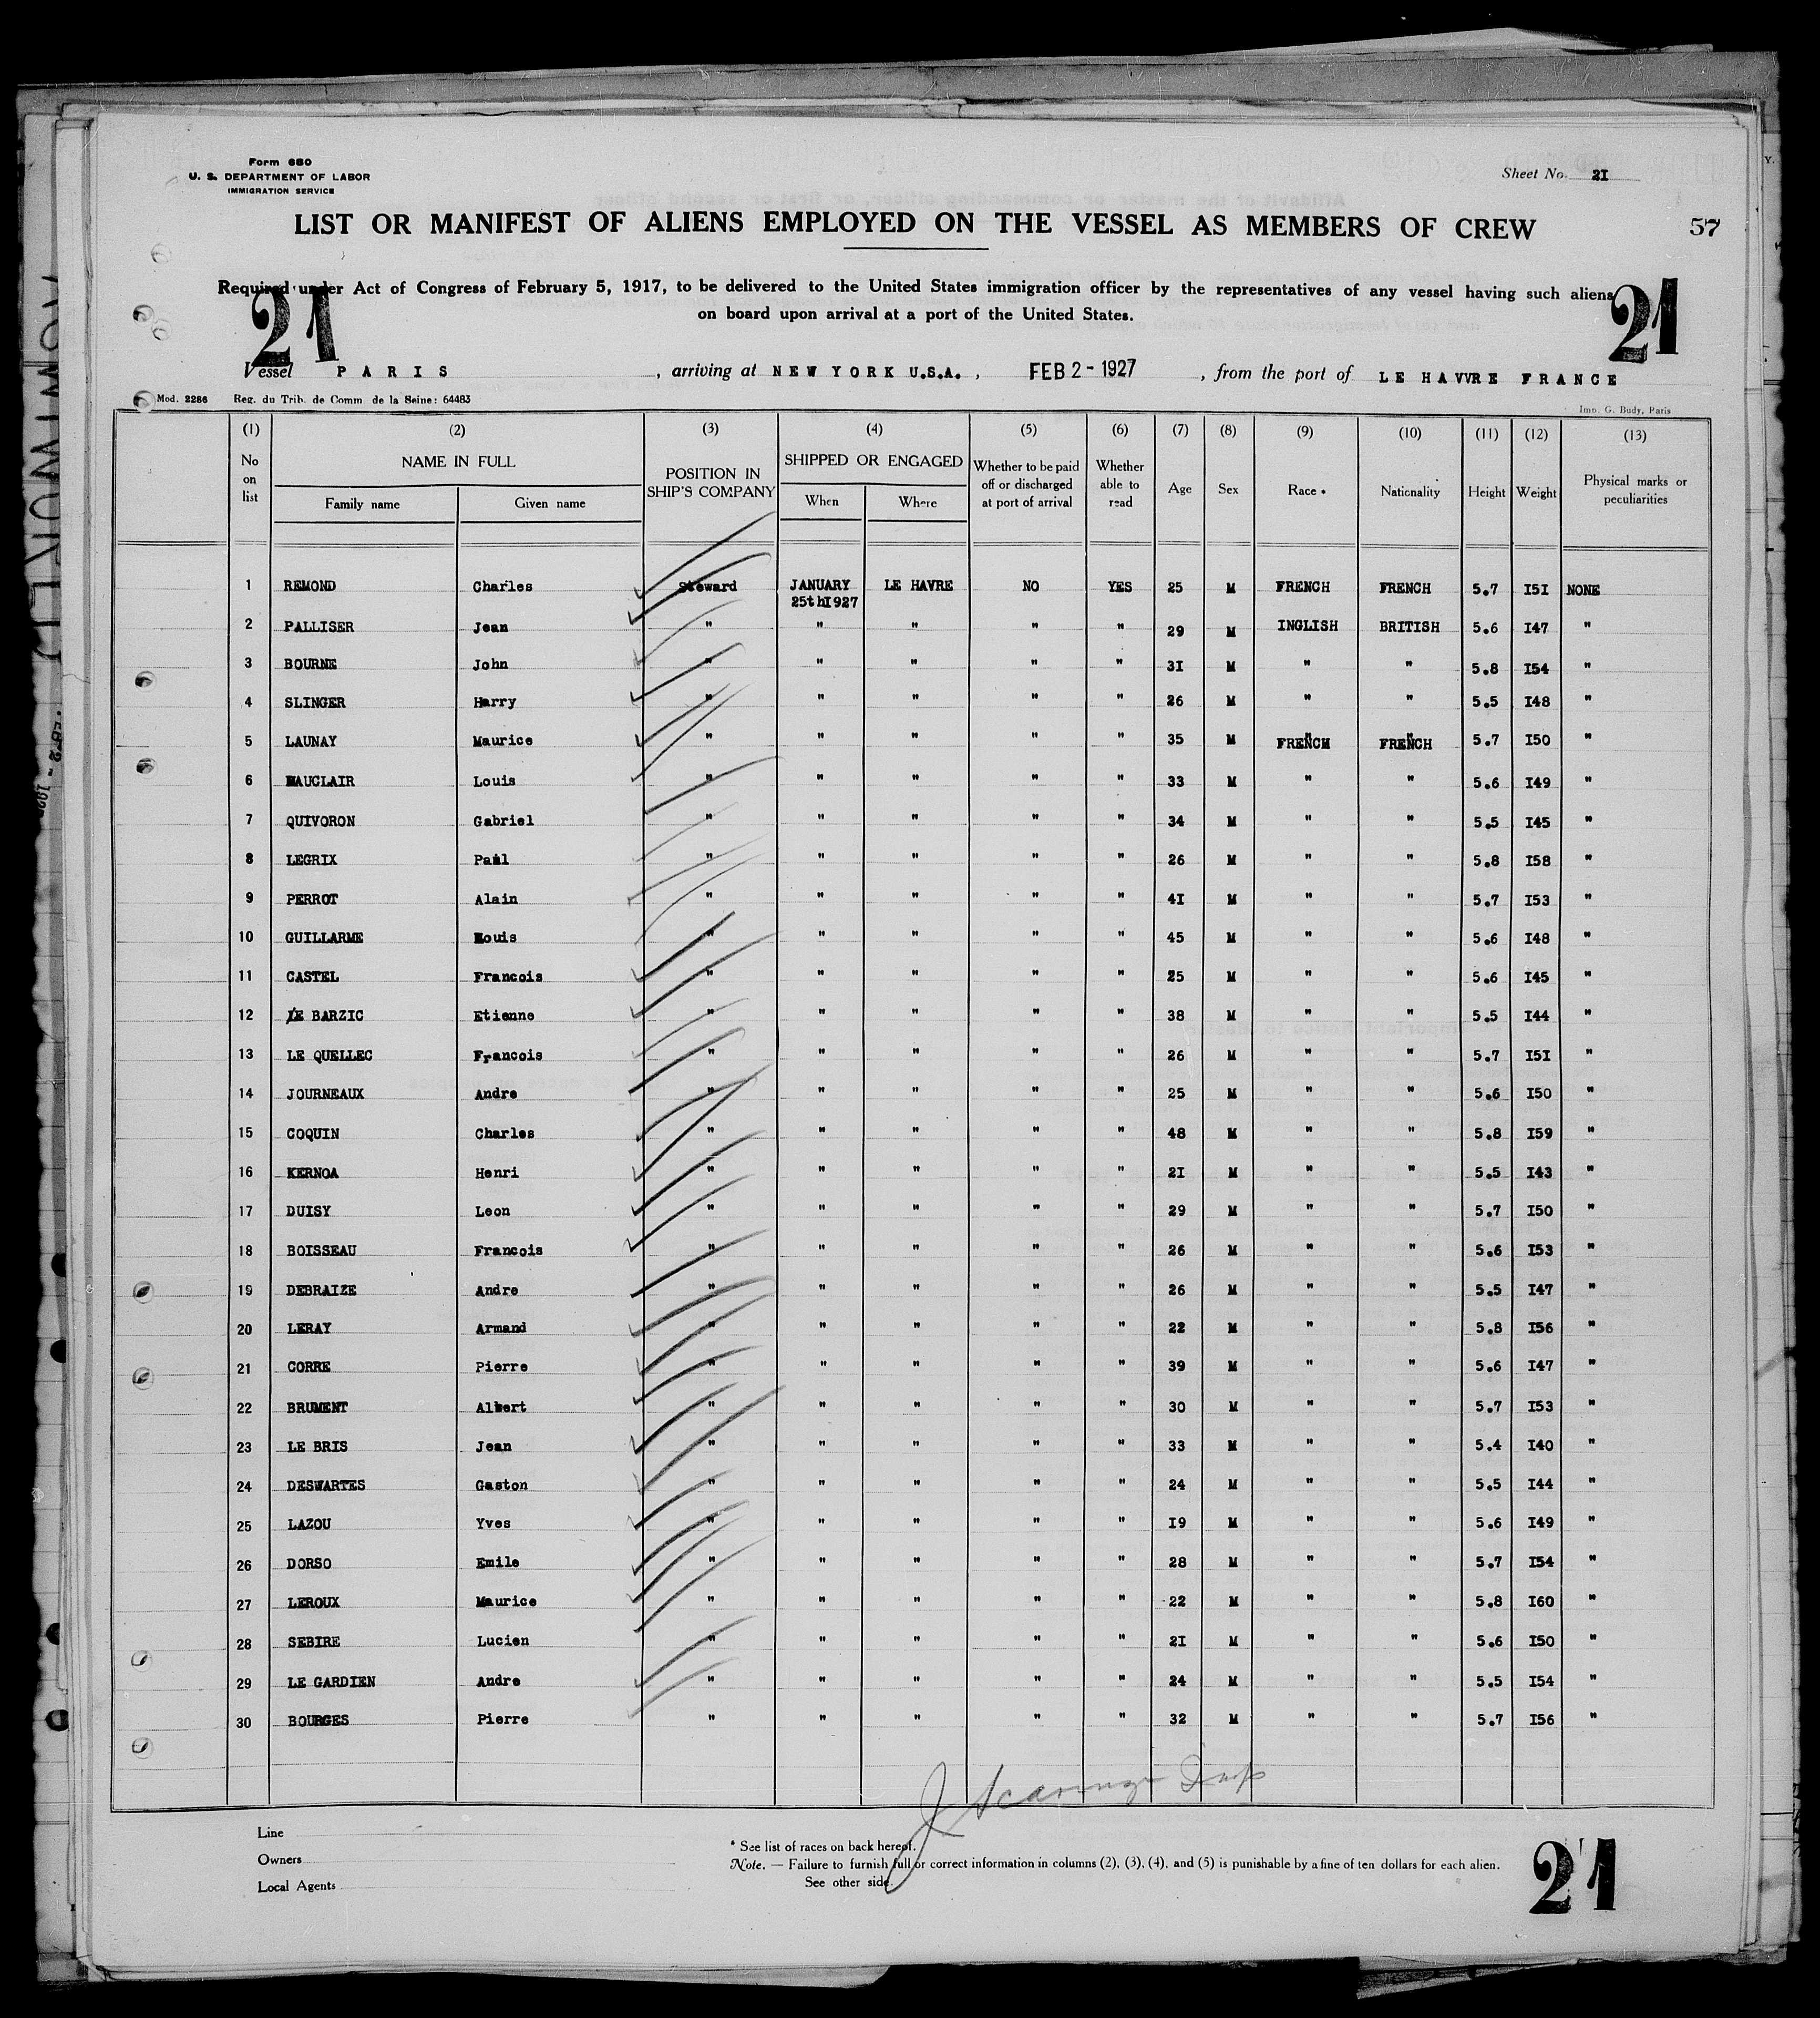 Form 680
U. S. DEPARTMENT OF LABOR
IMMIGRATION SERVICE
Sheet No. 2I
LIST OR MANIFEST OF ALIENS EMPLOYED ON THE VESSEL AS MEMBERS OF CREW
57
Required under Act of Congress of February 5, 1917, to be delivered to the United States immigration officer by the representatives of any vessel having such aliens
on board upon arrival at a port of the United States.
21 21
Vessel PARIS , arriving at NEW YORK U.S.A. , FEB 2 - 1927 , from the port of LE HAVVRE FRANCE
Mod. 2286 Reg. du Trib. de Comm de la Seine: 64483
Imp. G. Budy, Paris
(1) (2) (3) (4) (5) (6) (7) (8) (9) (10) (11) (12) (13)
No on list NAME IN FULL POSITION IN SHIP'S COMPANY SHIPPED OR ENGAGED Whether to be paid off or discharged at port of arrival Whether able to read Age Sex Race * Nationality Height Weight Physical marks or peculiarities
Family name Given name When Where
1 REMOND Charles Steward JANUARY 25thI927 LE HAVRE NO YES 25 M FRENCH FRENCH 5.7 I5I NONE
2 PALLISER Jean " " " " " 29 M INGLISH BRITISH 5.6 I47 "
3 BOURNE John " " " " " 3I M " " 5.8 I54 "
4 SLINGER Harry " " " " " 26 M " " 5.5 I48 "
5 LAUNAY Maurice " " " " " 35 M FRENCH FRENCH 5.7 I50 "
6 MAUCLAIR Louis " " " " " 33 M " " 5.6 I49 "
7 QUIVORON Gabriel " " " " " 34 M " " 5.5 I45 "
8 LEGRIX Paul " " " " " 26 M " " 5.8 I58 "
9 PERROT Alain " " " " " 4I M " " 5.7 I53 "
10 GUILLARME Louis " " " " " 45 M " " 5.6 I48 "
11 CASTEL Francois " " " " " 25 M " " 5.6 I45 "
12 LE BARZIC Etienne " " " " " 38 M " " 5.5 I44 "
13 LE QUELLEC Francois " " " " " 26 M " " 5.7 I5I "
14 JOURNEAUX Andre " " " " " 25 M " " 5.6 I50 "
15 COQUIN Charles " " " " " 48 M " " 5.8 I59 "
16 KERNOA Henri " " " " " 2I M " " 5.5 I43 "
17 DUISY Leon " " " " " 29 M " " 5.7 I50 "
18 BOISSEAU Francois " " " " " 26 M " " 5.6 I53 "
19 DEBRAIZE Andre " " " " " 26 M " " 5.5 I47 "
20 LERAY Armand " " " " " 22 M " " 5.8 I56 "
21 CORRE Pierre " " " " " 39 M " " 5.6 I47 "
22 BRUMENT Albert " " " " " 30 M " " 5.7 I53 "
23 LE BRIS Jean " " " " " 33 M " " 5.4 I40 "
24 DESWARTES Gaston " " " " " 24 M " " 5.5 I44 "
25 LAZOU Yves " " " " " I9 M " " 5.6 I49 "
26 DORSO Emile " " " " " 28 M " " 5.7 I54 "
27 LEROUX Maurice " " " " " 22 M " " 5.8 I60 "
28 SEBIRE Lucien " " " " " 2I M " " 5.6 I50 "
29 LE GARDIEN Andre " " " " " 24 M " " 5.5 I54 "
30 BOURGES Pierre " " " " " 32 M " " 5.7 I56 "
Line
Owners
Local Agents
* See list of races on back hereof.
Note. — Failure to furnish full or correct information in columns (2), (3), (4), and (5) is punishable by a fine of ten dollars for each alien.
See other side.
21